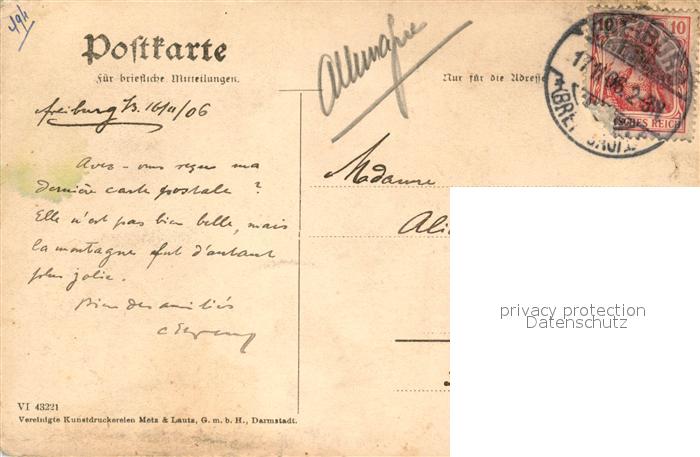 49/1
Postkarte
Für briefliche Mitteilungen.
Allemagne
Nur für die Adresse
10 10
17.11.06. 2-3N
(BREISGAU)
SCHES REICH
Freiburg /B. 16/11/06
Avez-vous reçu ma
dernière carte postale ?
Elle n'est pas bien belle, mais
la montagne fut d'autant
plus jolie.
Bien des amitiés
Madame
Ali
privacy protection
Datenschutz
VI 43221
Vereinigte Kunstdruckereien Metz & Lautz, G. m. b. H., Darmstadt.